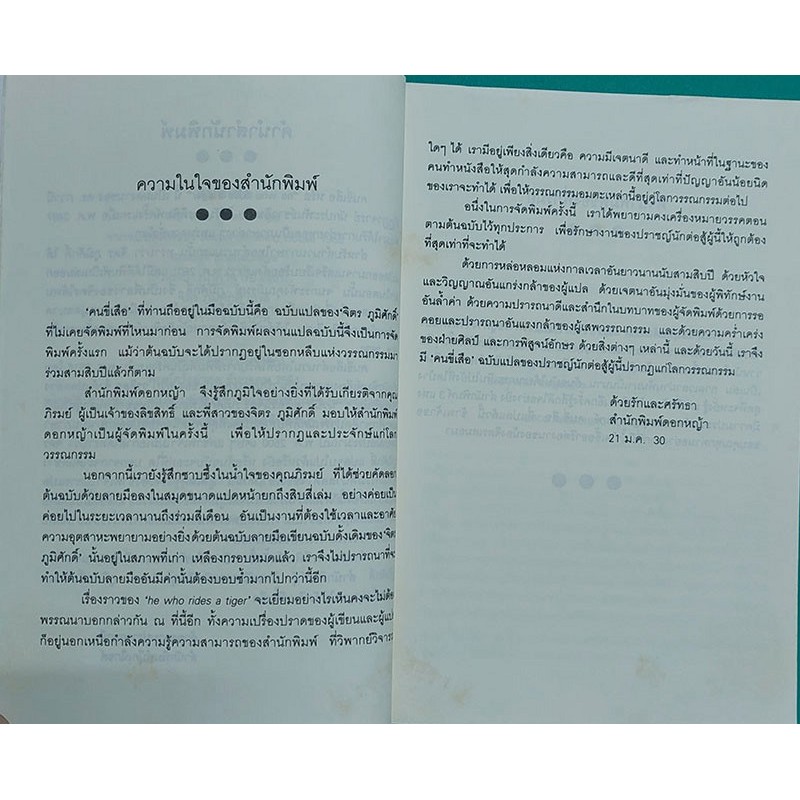 ความในใจของสำนักพิมพ์
'คนขี่เสือ' ที่ท่านถืออยู่ในมือฉบับนี้คือ ฉบับแปลของ'จิตร ภูมิศักดิ์'
ที่ไม่เคยจัดพิมพ์ที่ไหนมาก่อน การจัดพิมพ์ผลงานแปลฉบับนี้จึงเป็นการจัด
พิมพ์ครั้งแรก แม้ว่าต้นฉบับจะได้ปรากฏอยู่ในซอกหลืบแห่งวรรณกรรมมา
ร่วมสามสิบปี แล้วก็ตาม
สำนักพิมพ์ดอกหญ้า จึงรู้สึกภูมิใจอย่างยิ่งที่ได้รับเกียรติจากคุณ
ภิรมย์ ผู้เป็นเจ้าของลิขสิทธิ์ และพี่สาวของจิตร ภูมิศักดิ์ มอบให้สำนักพิมพ์
ดอกหญ้าเป็นผู้จัดพิมพ์ในครั้งนี้ เพื่อให้ปรากฏและประจักษ์แก่โลก
วรรณกรรม
นอกจากนี้เรายังรู้สึกซาบซึ้งในน้ำใจของคุณภิรมย์ ที่ได้ช่วยคัดลอก
ต้นฉบับด้วยลายมือลงในสมุดขนาดแปดหน้ายกถึงสิบสี่เล่ม อย่างค่อยเป็น
ค่อยไปในระยะเวลานานถึงร่วมสี่เดือน อันเป็นงานที่ต้องใช้เวลาและอาศัย
ความอุตสาหะพยายามอย่างยิ่งด้วยต้นฉบับลายมือเขียนฉบับดั้งเดิมของ'จิตร
ภูมิศักดิ์' นั้นอยู่ในสภาพที่เก่า เหลืองกรอบหมดแล้ว เราจึงไม่ปรารถนาที่จะ
ทำให้ต้นฉบับลายมืออันมีค่านั้นต้องบอบช้ำมากไปกว่านี้อีก
เรื่องราวของ 'he who rides a tiger' จะเยี่ยมอย่างไรเห็นคงจะไม่ต้อง
พรรณนาบอกกล่าวกัน ณ ที่นี้อีก ทั้งความเปรื่องปราดของผู้เขียนและผู้แปล
ก็อยู่นอกเหนือกำลังความรู้ความสามารถของสำนักพิมพ์ ที่วิพากย์วิจารณ์
ใดๆ ได้ เรามีอยู่เพียงสิ่งเดียวคือ ความมีเจตนาดี และทำหน้าที่ในฐานะของ
คนทำหนังสือให้สุดกำลังความสามารถและดีที่สุดเท่าที่ปัญญาอันน้อยนิด
ของเราจะทำได้ เพื่อให้วรรณกรรมอมตะเหล่านี้อยู่คู่โลกวรรณกรรมต่อไป
อนึ่งในการจัดพิมพ์ครั้งนี้ เราได้พยายามคงเครื่องหมายวรรคตอน
ตามต้นฉบับไว้ทุกประการ เพื่อรักษางานของปราชญ์นักต่อสู้ผู้นี้ให้ถูกต้อง
ที่สุดเท่าที่จะทำได้
ด้วยการหล่อหลอมแห่งกาลเวลาอันยาวนานนับสามสิบปี ด้วยหัวใจ
และวิญญาณอันแกร่งกล้าของผู้แปล ด้วยเจตนาอันมุ่งมั่นของผู้พิทักษ์งาน
อันล้ำค่า ด้วยความปรารถนาดีและสำนึกในบทบาทของผู้จัดพิมพ์ด้วยการรอ
คอยและปรารถนาอันแรงกล้าของผู้เสพวรรณกรรม และด้วยความคร่ำเคร่ง
ของฝ่ายศิลป์ และการพิสูจน์อักษร ด้วยสิ่งต่างๆ เหล่านี้ และด้วยวันนี้ เราจึง
มี 'คนขี่เสือ' ฉบับแปลของปราชญ์นักต่อสู้ผู้นี้ปรากฏแก่โลกวรรณกรรม
ด้วยรักและศรัทธา
สำนักพิมพ์ดอกหญ้า
21 ม.ค. 30